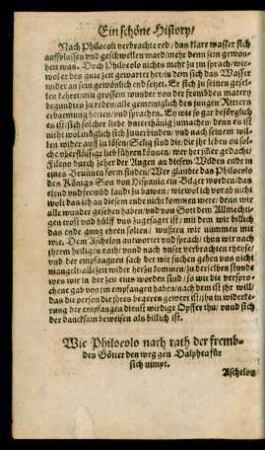 Ein schöne History/
Nach Philocoli verbrachte red/ das klare wasser sich
auffblassen vnd geschwellen ward/ mehr denn sein gewon-
heit was. Doch Philocolo nichts mehr zu jm sprach/ wie-
wol er des gute zeit gewartet het/ in dem sich das Wasser
wider an sein gewönlich end setzet. Er sich zu seinen gesel-
len keheret/ mit grossem wunder von der frembden matery
begundten zu reden/ alle gemeinglich des jungen Ritters
erbarmung heten/ vnd sprachen. So wie so gar
es ist/ sich solcher liebe vnterthänig zumachen/ denn es ist
nicht wol müglich sich zuuerbinden/ vnd nach seinem wil-
len wider auff zu lösen/ Selig sind die/ die jhr leben on sol-
che vberflüssige lieb führen können/ wer het jmer gedacht/
Fileno durch zeher der Augen an diesem Wilden ende in
eines Brunnen form finden/ Wer glaubt das Philocolo
des Königs Son von Hispania ein Bilger worden/ das
elend vnd frembd landt zu bawen/ wiewol ich vorab nicht
wolt das ich an diesem ende nicht kommen were/ denn wir
alle wunder gesehen haben/ vnd von Gott dem Allmechti-
gen trost vnd hülff vns zugesagt ist/ mit dem wir billich
das ende gung ehren solten/ wüsten wir nummen mit
wie. Dem Aschelon antwortet vnd sprach/ thun wir nach
jhrem heiligen rath/ vnnd nach vnser verbrachten theter/
vnd der empfangnen sach der wir suchen gehen vns nicht
mangelt/ alle zeit wider her zu kommen/ zu derselben stunde
wes wir in der zeit eins worden sind/ so wir die verspro-
chene gab von jm empfangen haben/ nach dem ist jhr will/
das die person die jhres begeres gewert ist/ jhn in widerke-
rung der empfangen dienst wirdige Opffer thu/ vnnd sich
der dancksam beweisen als billich ist.
Wie Philocolo nach rath der fremb-
den Götter den weg gen Dalphea für
sich nimpt.
Aschelon